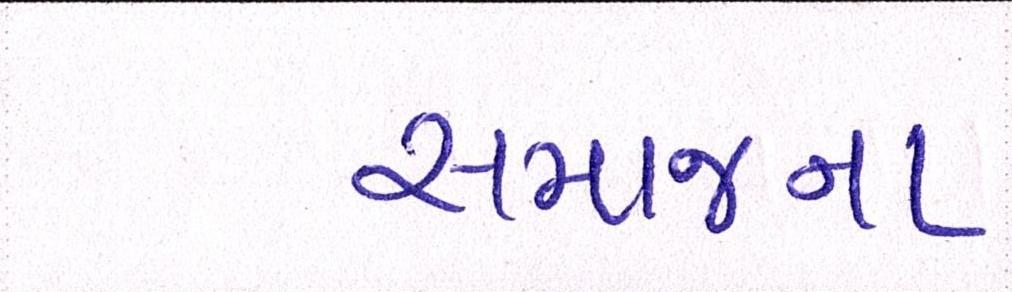 સમાજના